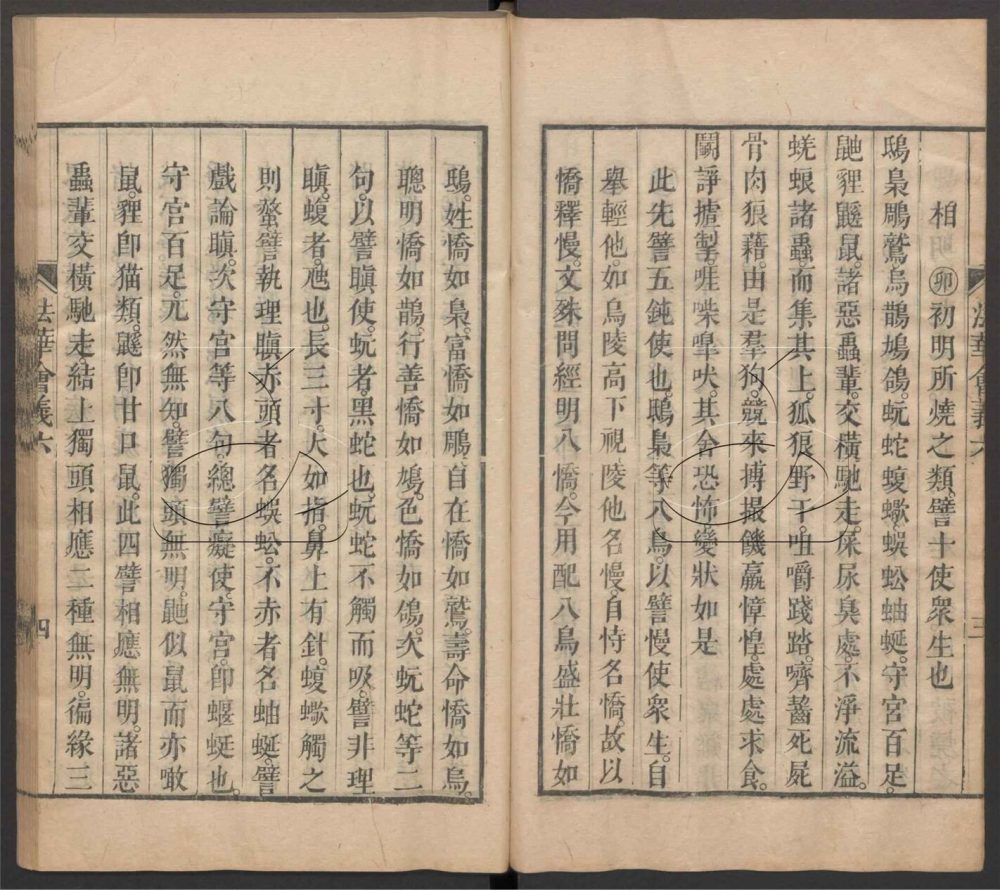 相明卯初明所燒之類。譬十使衆生也
鴟梟鵰鷲烏鵲鳩鴿。蚖蛇蝮蠍。蜈蚣蚰蜒。守宮百足。
鼬貍鼷鼠。諸惡蟲輩。交橫馳走。屎尿臭處。不淨流溢。
蜣蜋諸蟲。而集其上。狐狼野干。咀嚼踐踏。嚌齧死屍
骨肉狼藉。由是羣狗。競來搏撮。饑羸慞惶。處處求食。
鬬諍摣掣。啀喍嘷吠。其舍恐怖。變狀如是
此先譬五鈍使也。鴟梟等八鳥。以譬慢使衆生。自
舉輕他。如烏陵高下視陵他名慢。自恃名憍。故以
憍釋慢。文殊問經明八憍。今用配八鳥。盛壯憍如
鴟。姓憍如梟。富憍如鵰。自在憍如鷲。壽命憍如烏。
聰明憍如鵲。行善憍如鳩。色憍如鴿。次蚖蛇等二
句。以譬瞋使。蚖者。黑蛇也。蚖蛇不觸而吸。譬非理
瞋。蝮者。虺也。長三寸。大如指。鼻上有針。蝮蠍觸之
則螫。譬執理瞋。赤頭者名蜈蚣。不赤者名蚰蜒。譬
戲論瞋。次守宮等八句。總譬癡使。守宮。卽蝘蜓也。
守宮百足。兀然無知。譬獨頭無明。鼬似鼠而亦噉
鼠。貍卽猫類。鼷卽甘口鼠。此四譬相應無明。諸惡
蟲輩交橫馳走。結上獨頭相應二種無明。徧緣三
法華會義六
四